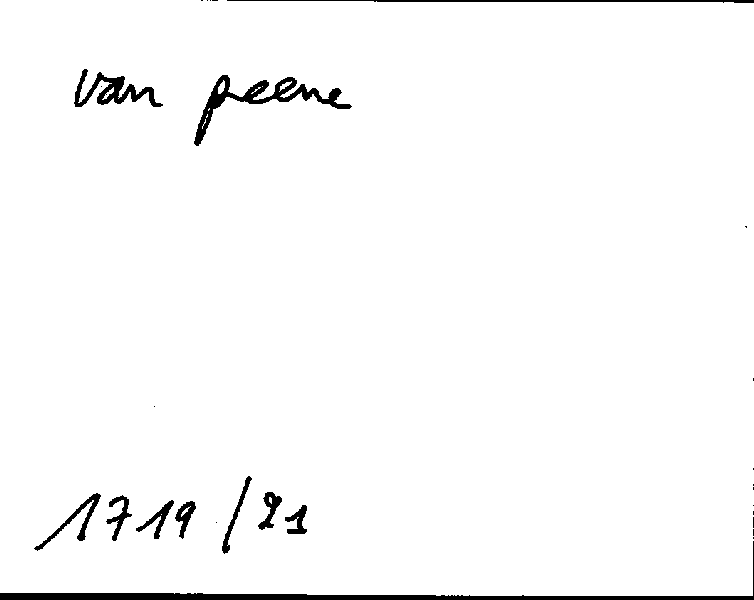 van peene
1719/21